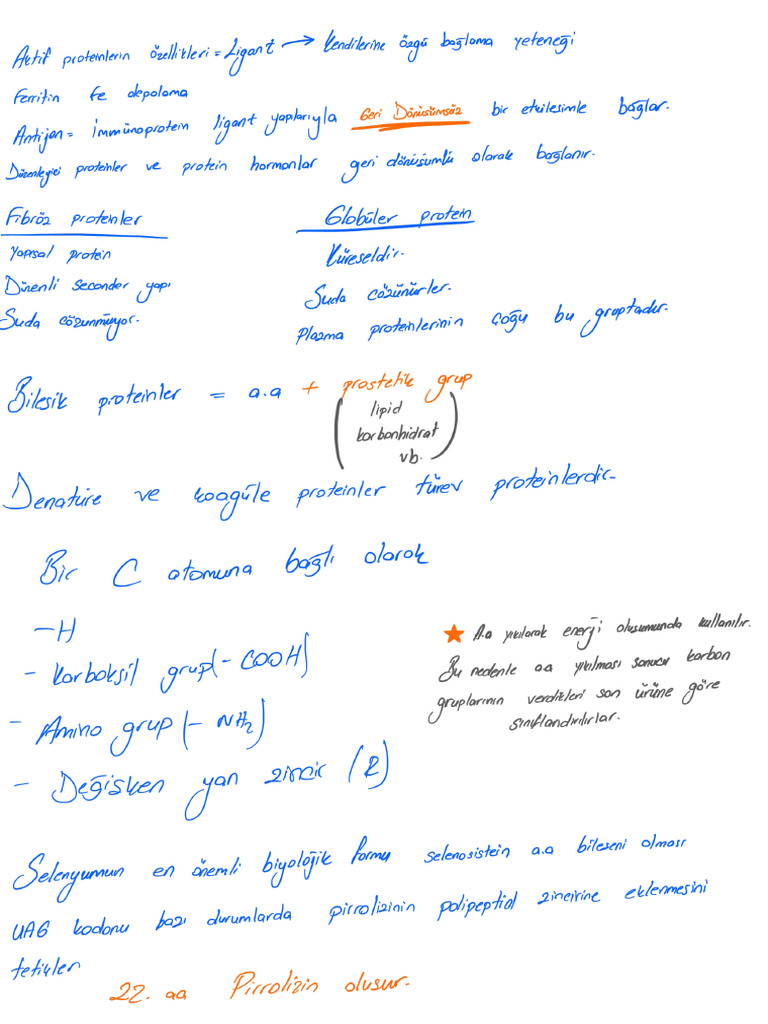 Aktif proteinlerin özellikleri = Ligant → Kendilerine özgü bağlama yeteneği
Ferritin Fe depolama
Antijan = immünoprotein ligant yapılarıyla Geri Dönüşümsüz bir etkileşimle bağlar.
Düzenleyici proteinler ve protein hormonlar geri dönüşümlü olarak bağlanır.
Fibröz proteinler
Yapısal protein
Düzenli seconder yapı
Suda çözünmüyor.
Globüler protein
Küreseldir.
Suda çözünürler.
Plazma proteinlerinin çoğu bu gruptadır.
Bileşik proteinler = a.a + prostetik grup
(lipid
karbonhidrat
vb.)
Denatüre ve koagüle proteinler türev proteinlerdir.
Bir C atomuna bağlı olarak
-H
- Karboksil grup (-COOH)
- Amino grup (-NH2)
- Değişken yan zincir (R)
★ A.a yıkılarak enerji oluşumunda kullanılır.
Bu nedenle aa yıkılması sonucu karbon
gruplarının verdikleri son ürüne göre
sınıflandırılırlar.
Selenyumun en önemli biyolojik formu selenosistein a.a bileşeni olması
UAG kodonu bazı durumlarda pirrolizinin polipeptid zincirine eklenmesini
tetikler
22. aa Pirrolizin oluşur.